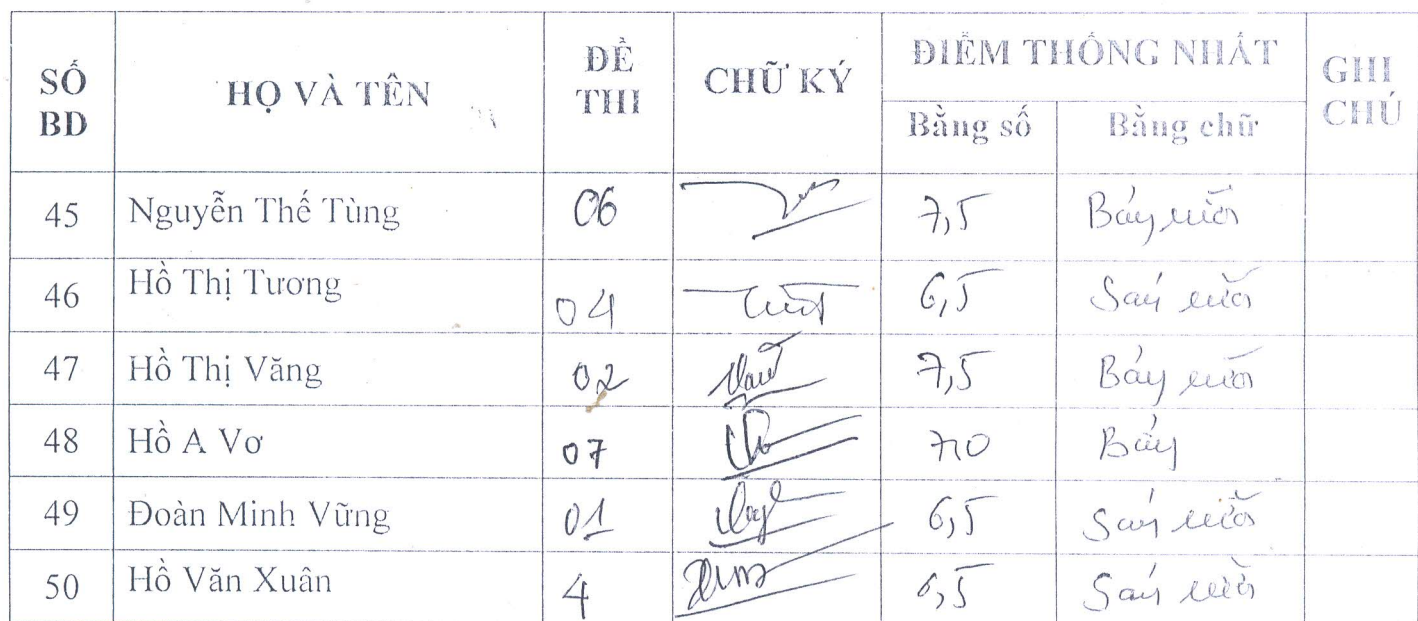 SỐ BD HỌ VÀ TÊN ĐỀ THI CHỮ KÝ ĐIỂM THỐNG NHẤT GHI CHÚ
Bằng số Bằng chữ
45 Nguyễn Thế Tùng 06 7,5 Bảy rưỡi
46 Hồ Thị Tương 04 6,5 Sáu rưỡi
47 Hồ Thị Văng 02 7,5 Bảy rưỡi
48 Hồ A Vơ 07 7,0 Bảy
49 Đoàn Minh Vững 01 6,5 Sáu rưỡi
50 Hồ Văn Xuân 4 6,5 Sáu rưỡi